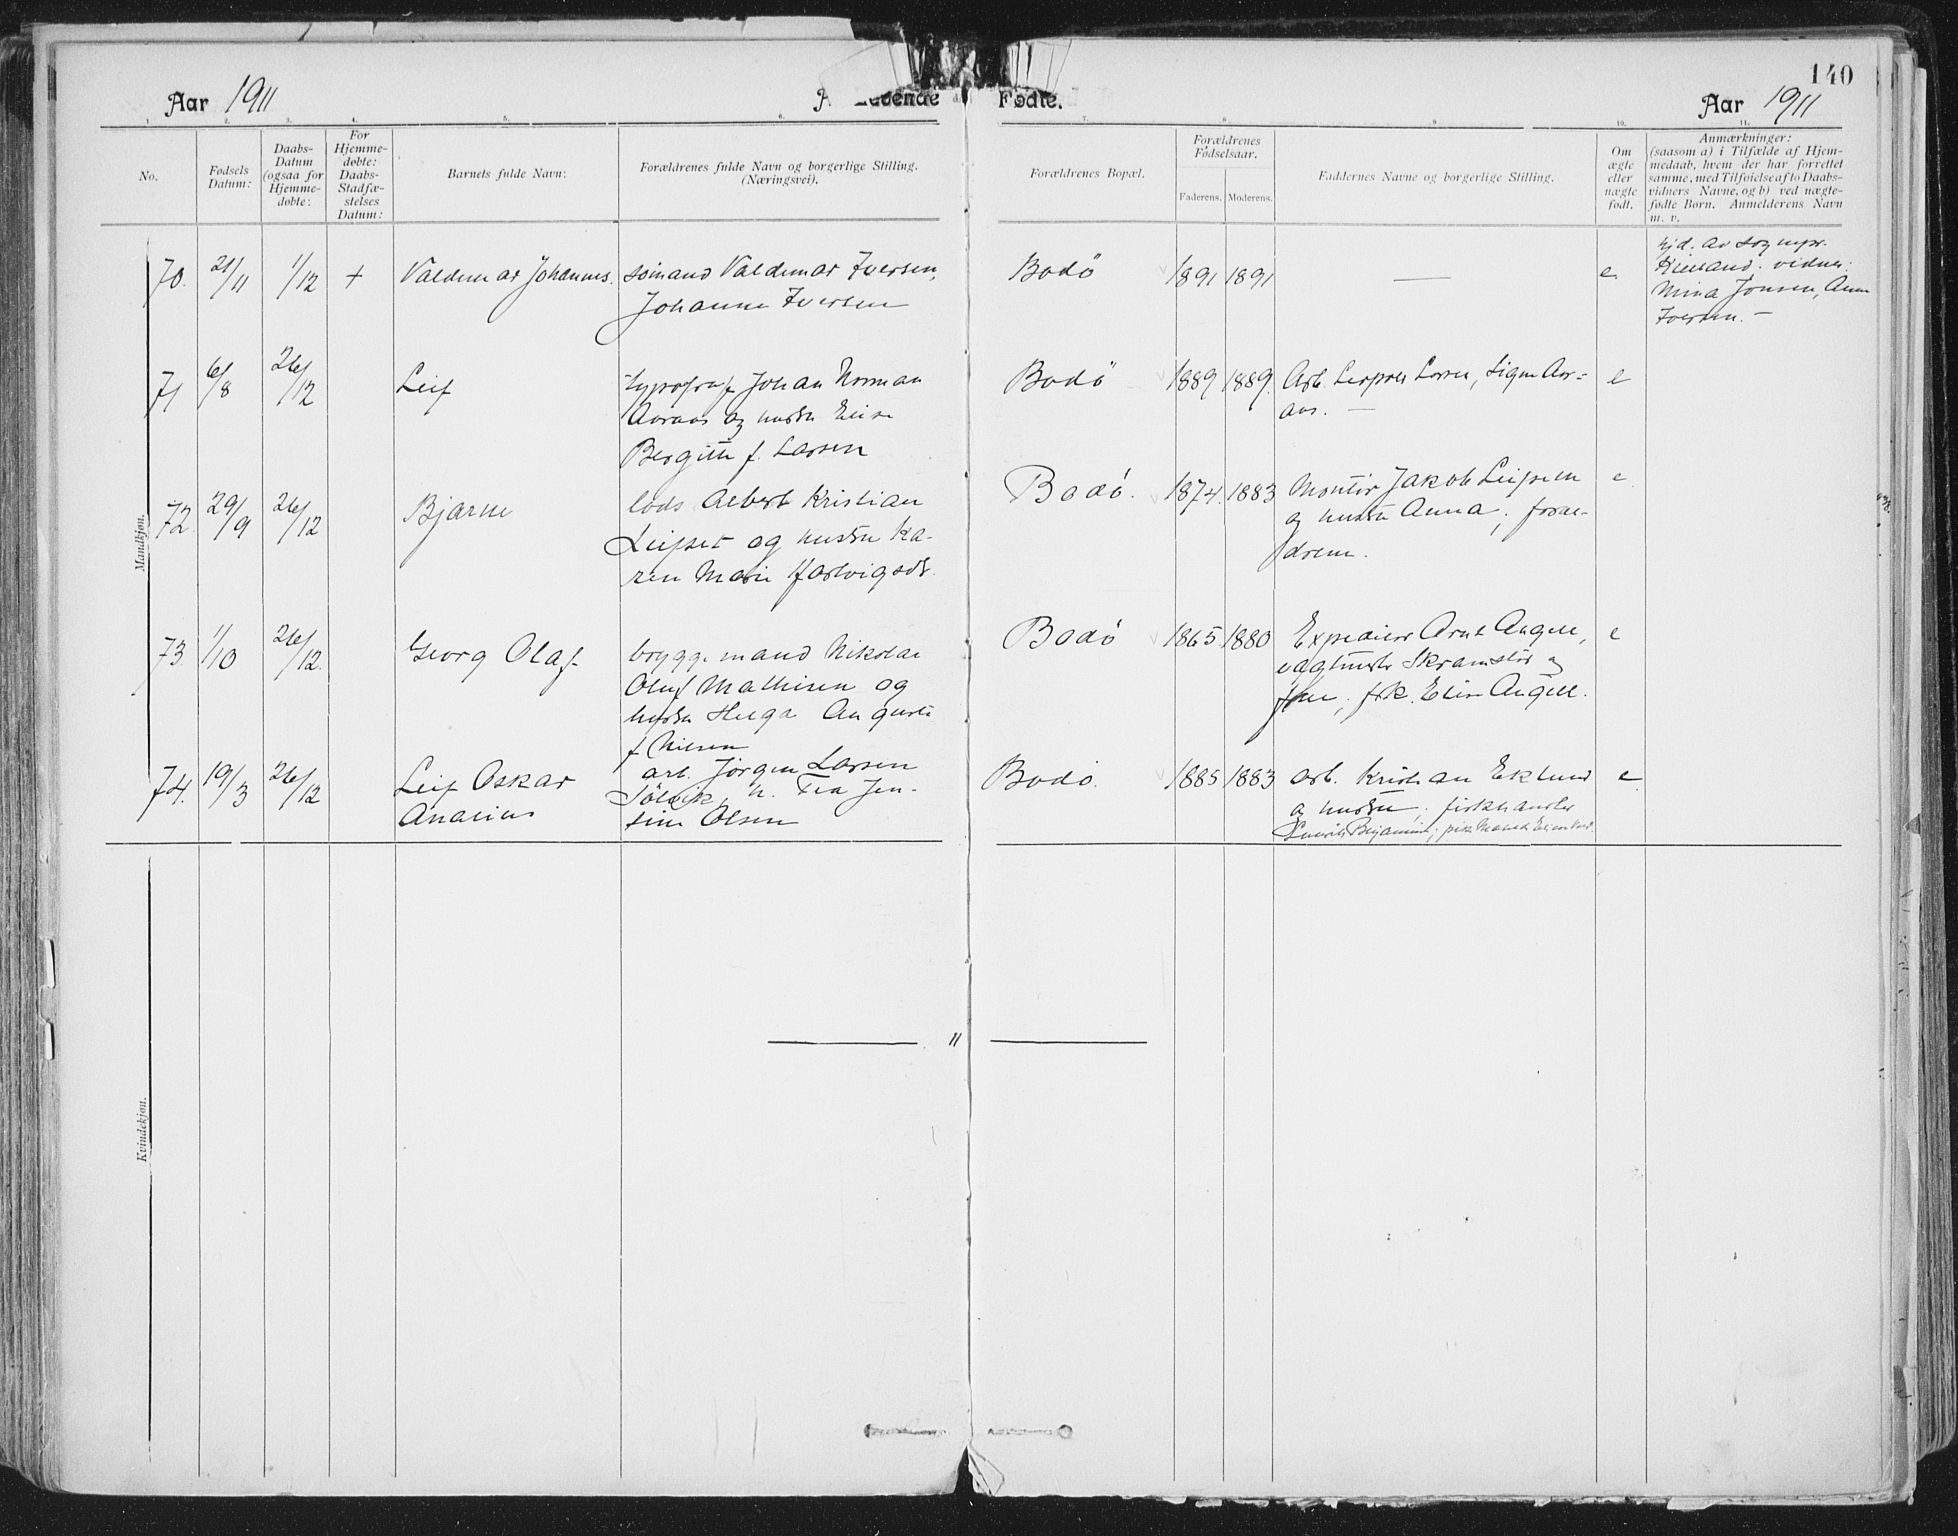 140
Aar 1911
Fødte.
Aar 1911
1. 2. 3. 4. 5. 6. 7. 8. 9. 10. 11.
No.
Fødsels
Datum:
Daabs-
Datum
(ogsaa for
Hjemme-
døbte:
For
Hjemme-
døbte:
Daabs-
Stadfæ-
stelses
Datum:
Barnets fulde Navn:
Forældrenes fulde Navn og borgerlige Stilling.
(Næringsvei).
Forældrenes Bopæl.
Forældrenes
Fødselsaar.
Faderens. Moderens.
Faddernes Navne og borgerlige Stilling.
Om
ægte
eller
uægte
født.
Anmærkninger:
(saasom a) i Tilfælde af Hjem-
medaab, hvem der har forrettet
samme, med Tilføielse af to Daabs-
vidners Navne, og b) ved uægte-
fødte Børn. Anmelderens Navn
m. v.
Mandkjøn.
70. 21/11 1/12 + Valdemar Johannes. sömand Valdemar Iversen,
Johanne Iversen
Bodö 1891 1891 — e
hjd. av sognepr.
Kielland. vidner:
Mina Jonsen, Anna
Iversen. —
71 6/8 26/12 Leif typograf Johan Norman
Aaraas og hustru Elise
Bergitte f. Larsen
Bodö 1889 1889. Arb. Larsen, Signe Aar-
aas. — e
72. 29/9 26/12 Bjarne lods Albert Kristian
Leifset og hustru Ka-
ren Marie Hartvigsdt.
Bodó. 1874. 1883 Montör Jakob Leifsen
og hustru Anna, foræl-
drene. e
73. 1/10 26/12. Georg Olaf bryggemand Nikolai
Oluf Mathisen og
hustru Helga Auguste
f. Nilsen
Bodö 1865. 1880 Expeditör Arnt Angell,
Skramstör og
frue, frk. Elise Angell. e
74. 19/3 26/12 Leif Oskar
Analius
arb. Jörgen Larsen
Sölvik, h. Tea Jen-
sine Olsen
Bodö. 1885 1883 arb. Kristian Eklund
og hustru, fiskehandler
Benjaminsen, e
11
Kvindekjøn.